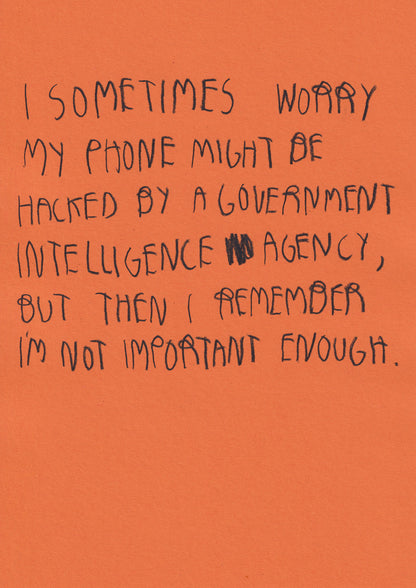 I SOMETIMES WORRY
MY PHONE MIGHT BE
HACKED BY A GOVERNMENT
INTELLIGENCE AGENCY,
BUT THEN I REMEMBER
I'M NOT IMPORTANT ENOUGH.